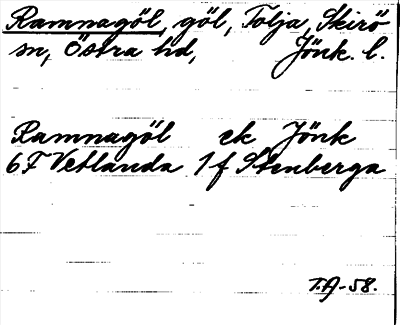 Ramnagöl, göl, Tolja, Skirö
sn, Östra hd, Jönk. l.
Ramnagöl ek Jönk
6F Vetlanda 1f Stenberga
T.A-58.